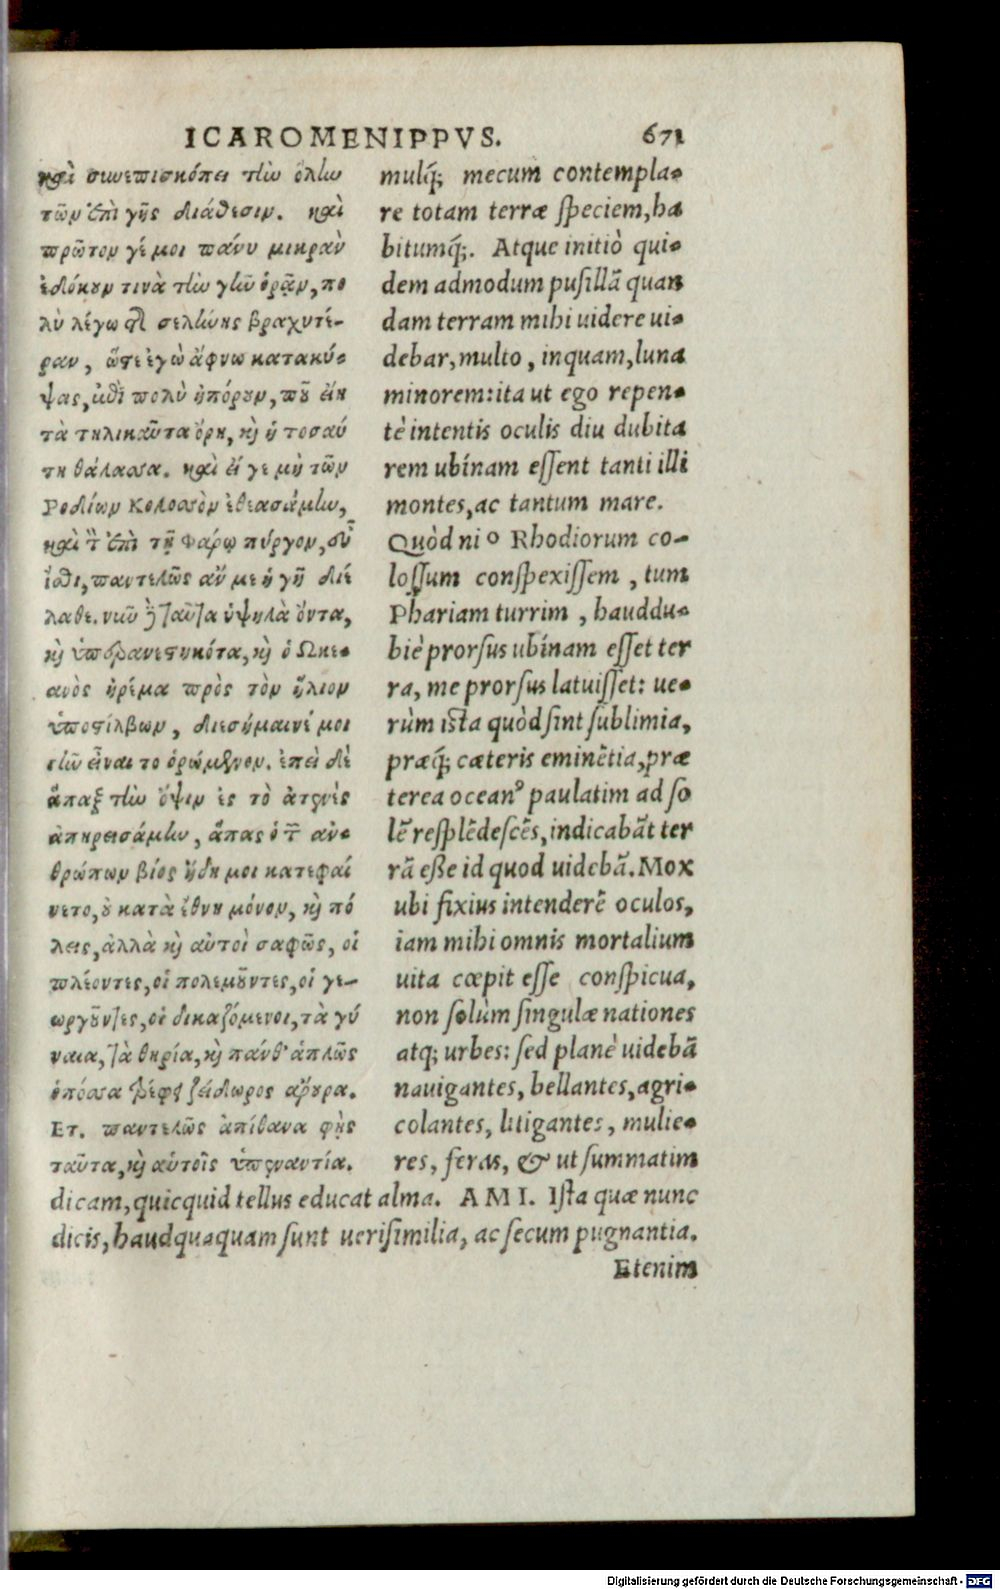 ICAROMENIPPVS. 671
καὶ συνεπισκόπει τὴν ὅλην
τῶν ἐπὶ γῆς διάθεσιν. καὶ
πρῶτόν γέ μοι πάνυ μικρὰν
ἐδόκουν τινὰ τὴν γῆν ὁρᾷν, πο
λὺ λέγω τῆς σελήνης βραχυτέ-
ραν, ὥστε ἐγὼ ἄφνω κατακύ-
ψας, ἐπὶ πολὺ ἠπόρουν, ποῦ εἴη
τὰ τηλικαῦτα ὄρη, καὶ ἡ τοσαύ
τη θάλασσα. καὶ εἴ γε μὴ τῶν
Ροδίων Κολοσσὸν ἐθεασάμην,
καὶ τὸν ἐπὶ τῇ Φάρῳ πύργον, εὖ
ἴσθι, παντελῶς ἄν με ἡ γῆ διέ
λαθε. νῦν δὲ ταῦτα ὑψηλὰ ὄντα,
καὶ ὑπερανεστηκότα, καὶ ὁ Ωκε-
ανὸς ἠρέμα πρὸς τὸν ἥλιον
ὑποστίλβων, διεσήμαινέ μοι
γῆν εἶναι το ὁρώμενον. ἐπεὶ δὲ
ἅπαξ τὴν ὄψιν ἐς τὸ ἀτενὲς
ἀπηρεισάμην, ἅπας ὁ τῶν ἀν-
θρώπων βίος ἤδη μοι κατεφαί
νετο, οὐ κατὰ ἔθνη μόνον, καὶ πό
λεις, ἀλλὰ καὶ αὐτοὶ σαφῶς, οἱ
πλέοντες, οἱ πολεμοῦντες, οἱ γε-
ωργοῦντες, οἱ δικαζόμενοι, τὰ γύ
ναια, τὰ θηρία, καὶ πάνθ' ἁπλῶς
ὁπόσα τρέφει ζείδωρος ἄρουρα.
ΕΤ. παντελῶς ἀπίθανα φῂς
ταῦτα, καὶ αὑτοῖς ὑπεναντία.
mulq́; mecum contempla-
re totam terræ speciem, ha
bitumq́;. Atque initiò qui-
dem admodum pusillã quan
dam terram mihi uidere ui-
debar, multo, inquam, luna
minorem: ita ut ego repen-
tè intentis oculis diu dubita
rem ubínam essent tanti illi
montes, ac tantum mare.
Quòd ni ꝰ Rhodiorum co-
lossum conspexissem, tum
Phariam turrim, hauddu-
biè prorsus ubínam esset ter
ra, me prorsus latuisset: ue-
rùm ista quòd sint sublimia,
præq́; cæteris eminẽtia, præ
terea oceanꝰ paulatim ad so
lẽ resplẽdescẽs, indicabãt ter
rã esse id quod uidebã. Mox
ubi fixius intenderẽ oculos,
iam mihi omnis mortalium
uita cœpit esse conspicua,
non solùm singulæ nationes
atq; urbes: sed planè uidebã
nauigantes, bellantes, agri-
colantes, litigantes, mulie-
res, feras, & ut summatim
dicam, quicquid tellus educat alma. AMI. Ista quæ nunc
dicis, haudquaquam sunt uerisimilia, ac secum pugnantia.
Etenim
Digitalisierung gefördert durch die Deutsche Forschungsgemeinschaft - DFG